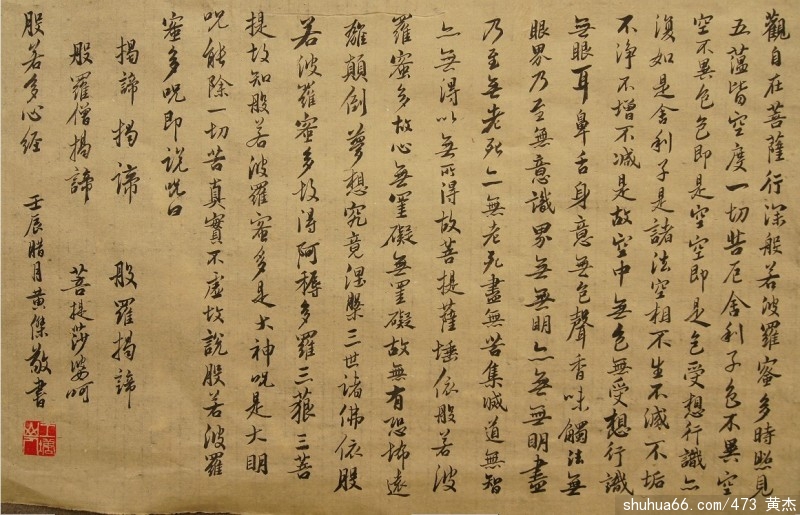 觀自在菩薩行深般若波羅蜜多時照見
五蕰皆空度一切苦厄舍利子色不異空
空不異色色即是空空即是色受想行識亦
復如是舍利子是諸法空相不生不滅不垢
不淨不增不减是故空中無色無受想行識
無眼耳鼻舌身意無色聲香味觸法無
眼界乃至無意識界無無明亦無無明盡
乃至無老死亦無老死盡無苦集滅道無智
亦無得以無所得故菩提薩埵依般若波
羅蜜多故心無罣礙無罣礙故無有恐怖遠
離顛倒夢想究竟涅槃三世諸佛依般
若波羅蜜多故得阿耨多羅三藐三菩
提故知般若波羅蜜多是大神咒是大明
咒能除一切苦真實不虛故說般若波羅
蜜多咒即說咒曰
揭諦揭諦 般羅揭諦
般羅僧揭諦 菩提莎婆呵
般若多心經 壬辰腊月黄傑敬書
shuhua66.com/473 黄杰